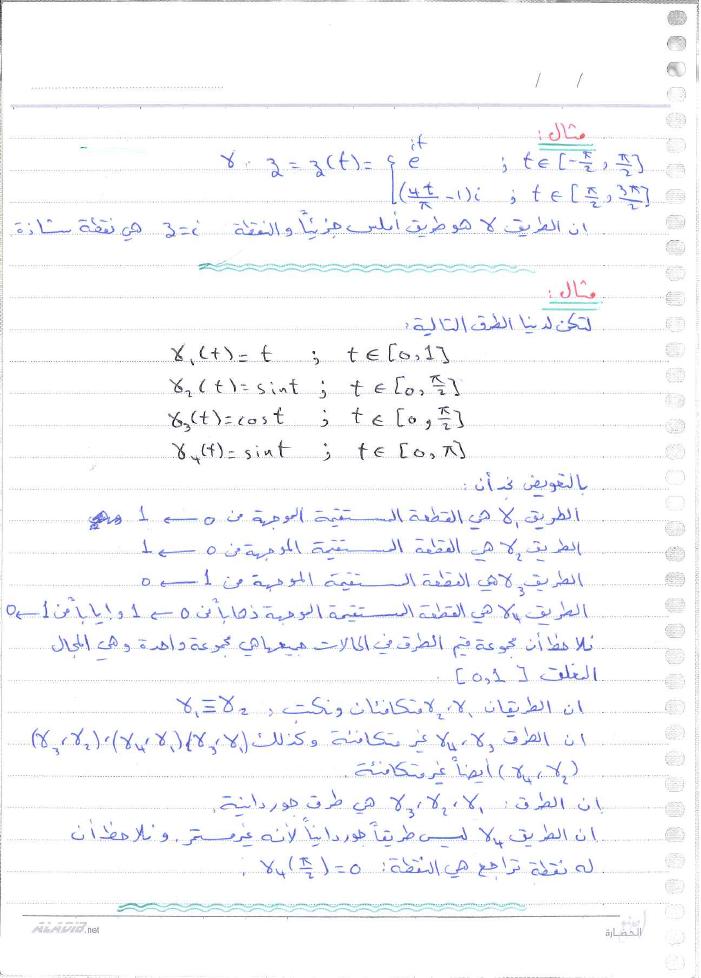 / /
مثال:
γ: z = z(t) = { e^{it} ; t ∈ [-π/2, π/2]
(4t/π - 1)i ; t ∈ [π/2, 3π/2]
ان الطريق γ هو طريق أملس جزئياً والنقطة z=i هي نقطة شاذة.
مثال:
لتكن لدينا الطرق التالية:
γ₁(t) = t ; t ∈ [0,1]
γ₂(t) = sint ; t ∈ [0, π/2]
γ₃(t) = cost ; t ∈ [0, π/2]
γ₄(t) = sint ; t ∈ [0, π]
بالتعويض نجد أن:
الطريق γ₁ هي القطعة المستقيمة الموجهة من 0 ← 1
الطريق γ₂ هي القطعة المستقيمة الموجهة من 0 ← 1
الطريق γ₃ هي القطعة المستقيمة الموجهة من 1 ← 0
الطريق γ₄ هي القطعة المستقيمة الموجهة ذهاباً من 0 ← 1 وإياباً من 1 ← 0
نلاحظ أن مجموعة قيم الطرق في الحالات جميعها هي مجموعة واحدة وهي المجال
المغلق [0,1].
ان الطريقان γ₁، γ₂ متكافئتان ونكتب: γ₁ ≡ γ₂
ان الطرق γ₃، γ₄ غير متكافئة وكذلك (γ₁، γ₃)، (γ₁، γ₄)، (γ₂، γ₃)
(γ₂، γ₄) أيضاً غير متكافئة.
ان الطرق: γ₁، γ₂، γ₃ هي طرق جوردانية.
ان الطريق γ₄ ليس طريقاً جوردانياً لأنه غير مستمر. ونلاحظ أن
له نقطة تراجع هي النقطة: γ₄(π/2) = 0.
ALADIB.net
الحضارة